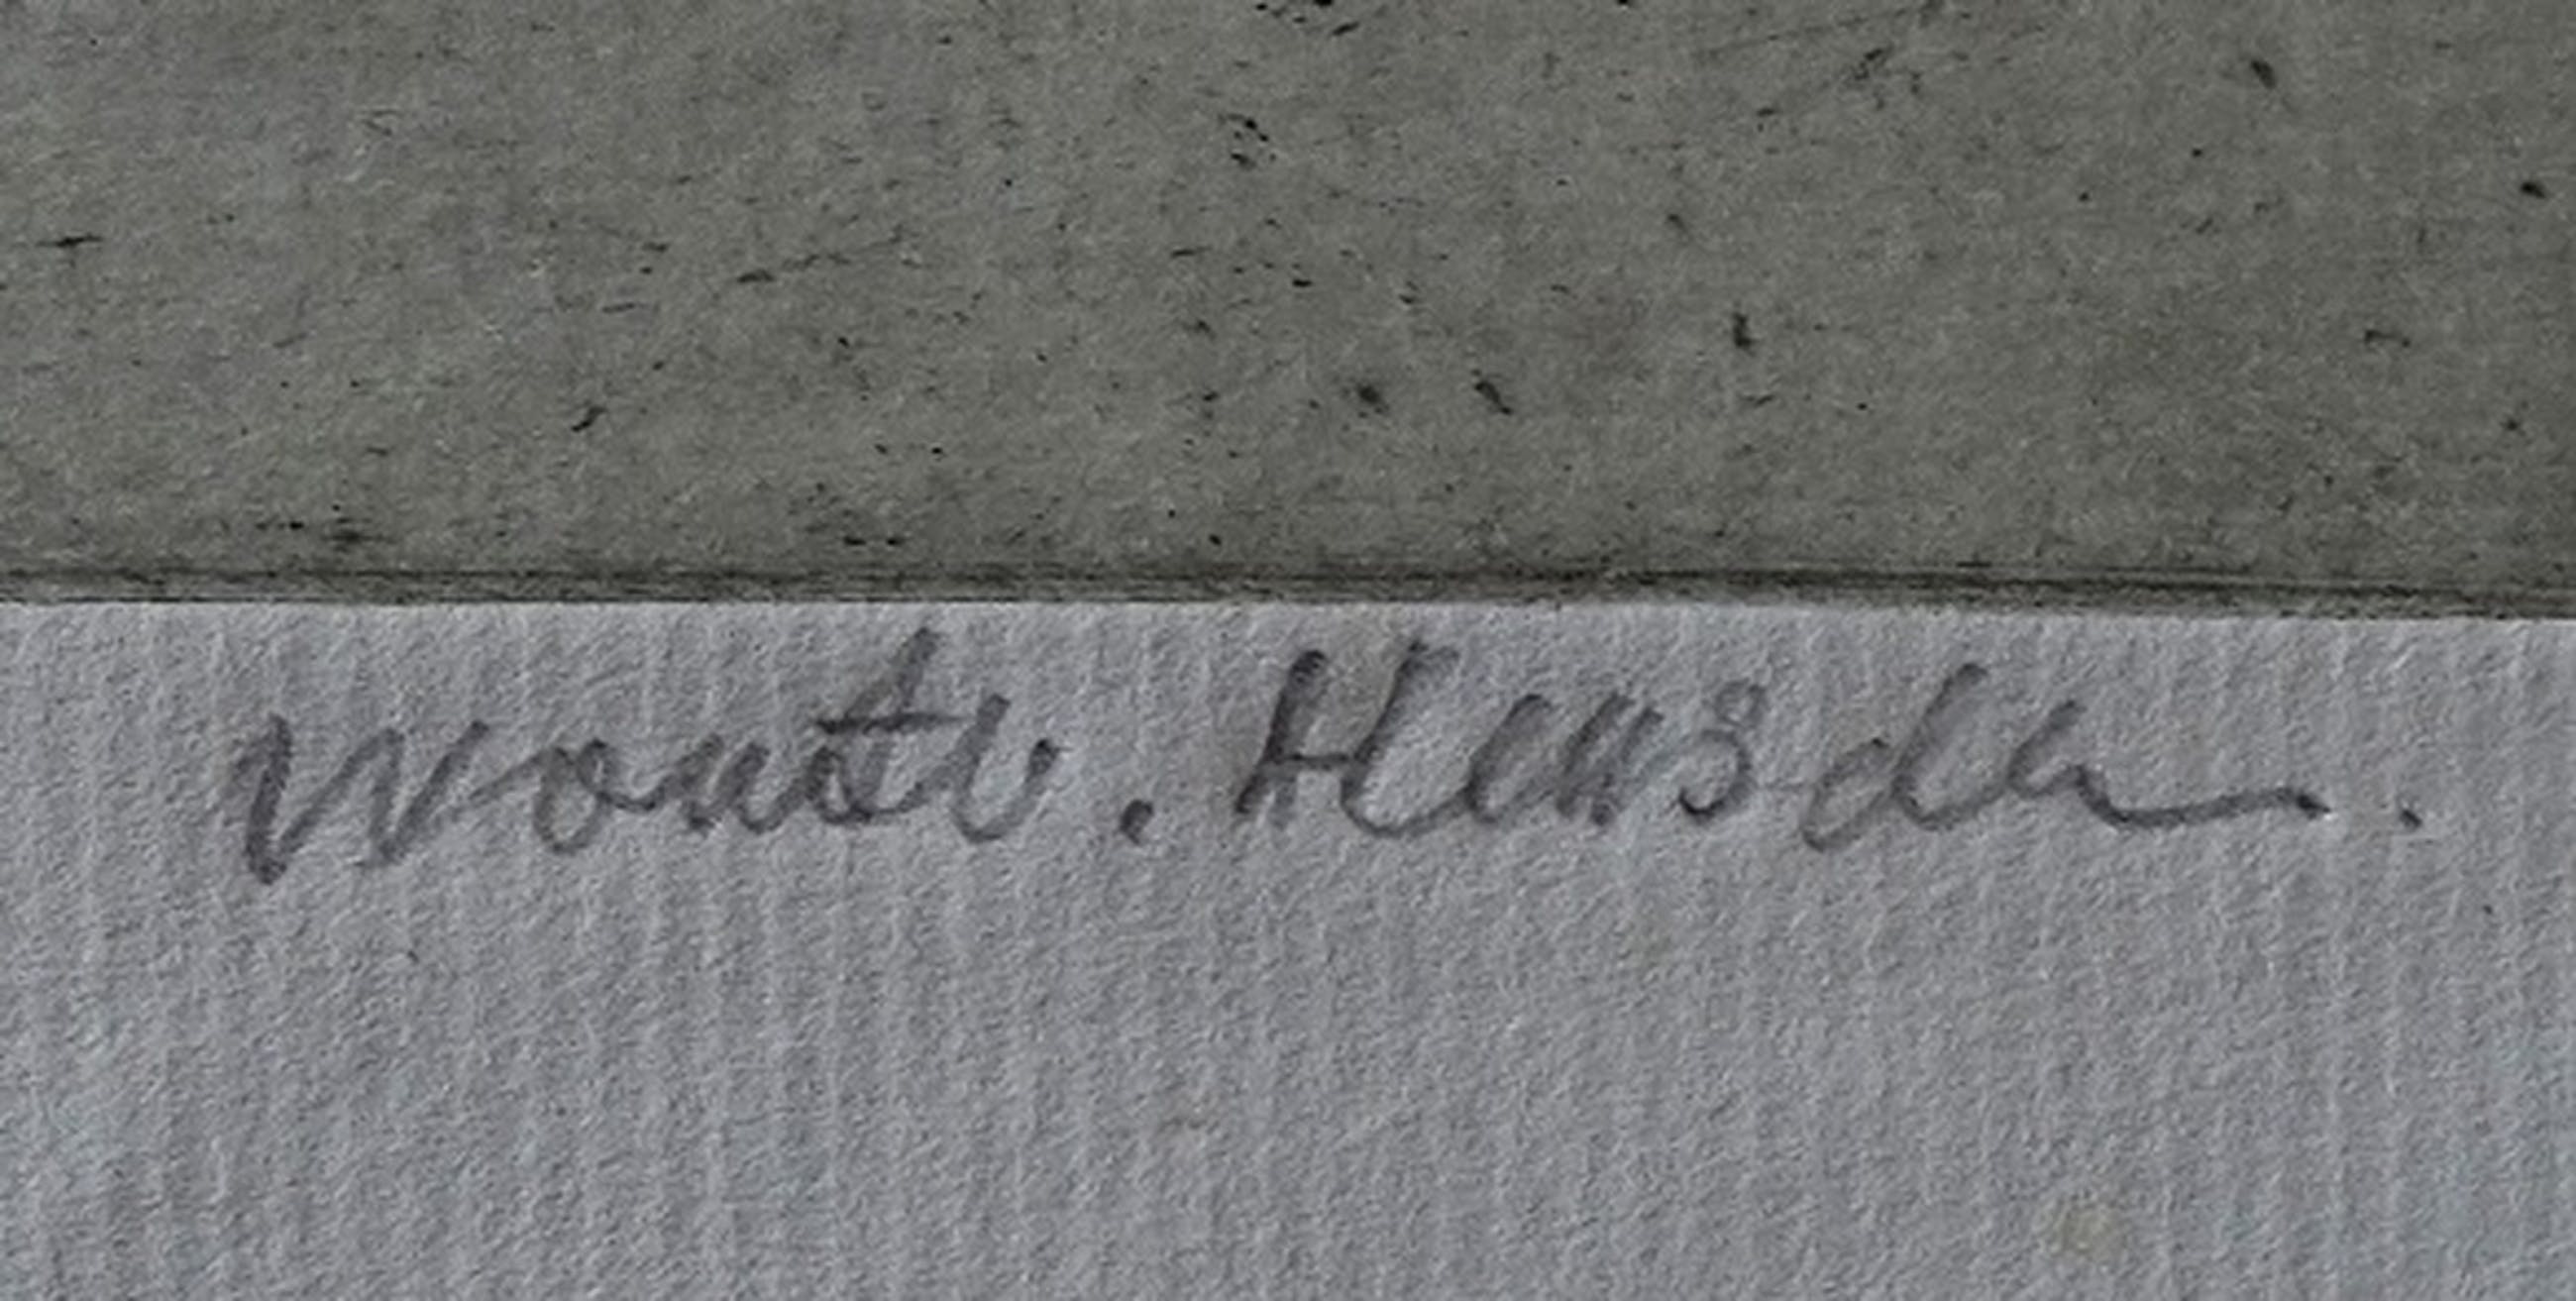 Wouter. Heusden.